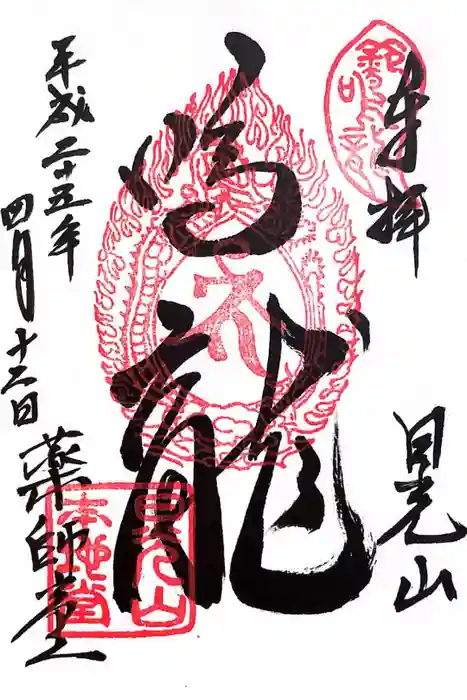 奉拝
日光山
鳴龍
平成二十五年
四月十二日
薬師堂
日光山
本地堂